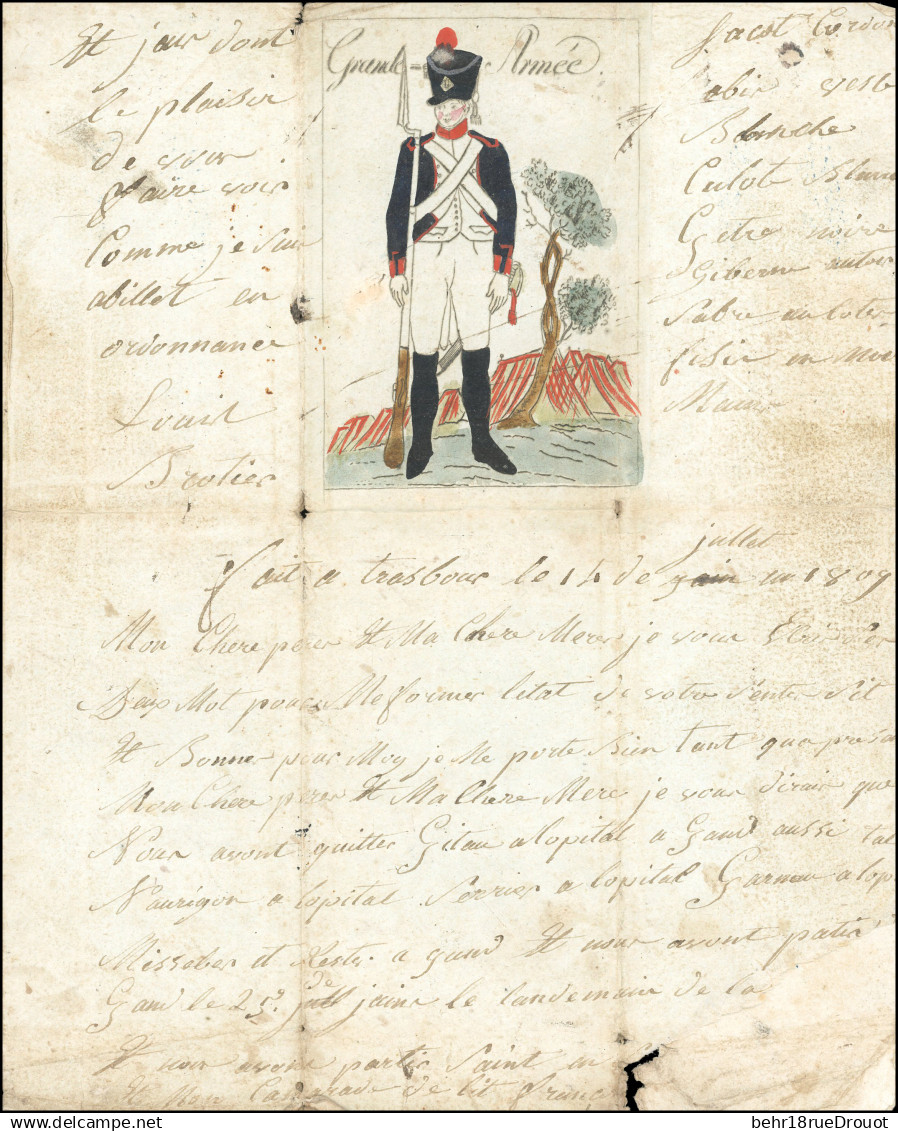 Grande Armée.
Et jour dont
le plaisir
de vous
faire voir
Comme je suu
abillet en
ordonnance
Louis
Brotier
Jacot Cordon
abir veste
Blanche
Culote Blan
Getre noire
Giberne autou
Sabre au Coter
fisis en
juillet
fait a trasbour le 14 de juin 1809
Mon Chere perer Et Ma Chere Merer je vous Ecris les
Deux Mot pour Me former l'etat de votre s'enter s'it
Et Bonner pour Moy je Me porte Bien tant qua presan
Mon Chere perer Et Ma Chere Mere je vous dirais que
Nous avont quitter Gitau a lopital a Gand aussi tal
Naurigon a lopital Serrier a lopital Garnau a lop
Misseber et Rester a gand Et nous avont patir
de
Gand le 25 juin le landemain de la
Et nous avont partir Saint en
Et Mon Camarade de lit franc
behr18rueDrouot